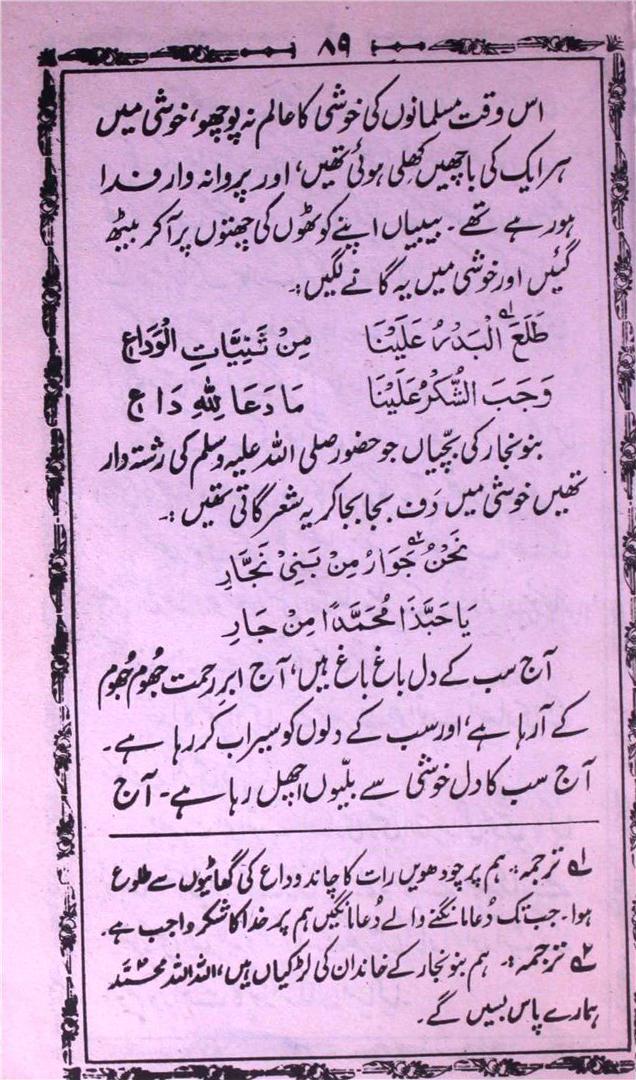 ۸۹
اس وقت مسلمانوں کی خوشی کا عالم نہ پوچھو، خوشی میں
ہر ایک کی باچھیں کھلی ہوئی تھیں، اور پروانہ وار فدا
ہو رہے تھے۔ بیبیاں اپنے کوٹھوں کی چھتوں پر آ کر بیٹھ
گئیں اور خوشی میں یہ گانے لگیں:۔
طَلَعَ الْبَدْرُ عَلَیْنَا ۱ مِنْ ثَنِیَّاتِ الْوَدَاعِ
وَجَبَ الشُّکْرُ عَلَیْنَا مَا دَعَا لِلّٰہِ دَاعِ
بنو نجار کی بچّیاں جو حضور صلی اللہ علیہ وسلم کی رشتہ دار
تھیں خوشی میں دَف بجا بجا کر یہ شعر گاتی تھیں:۔
نَحْنُ جَوَارُ مِنْ بَنِیْ نَجَّارِ ۲
یَا حَبَّذَا مُحَمَّدًا مِنْ جَارِ
آج سب کے دل باغ باغ ہیں، آج ابرِ رحمت جُھوم جُھوم
کے آ رہا ہے، اور سب کے دلوں کو سیراب کر رہا ہے۔
آج سب کا دل خوشی سے بلّیوں اچھل رہا ہے۔ آج
۱ ترجمہ:۔ ہم پر چودھویں رات کا چاند وداع کی گھاٹیوں سے طلوع
ہوا۔ جب تک دُعا مانگنے والے دُعا مانگیں ہم پر خدا کا شکر واجب ہے۔
۲ ترجمہ:۔ ہم بنو نجار کے خاندان کی لڑکیاں ہیں، اللہ اللہ محمّد
ہمارے پاس بسیں گے۔